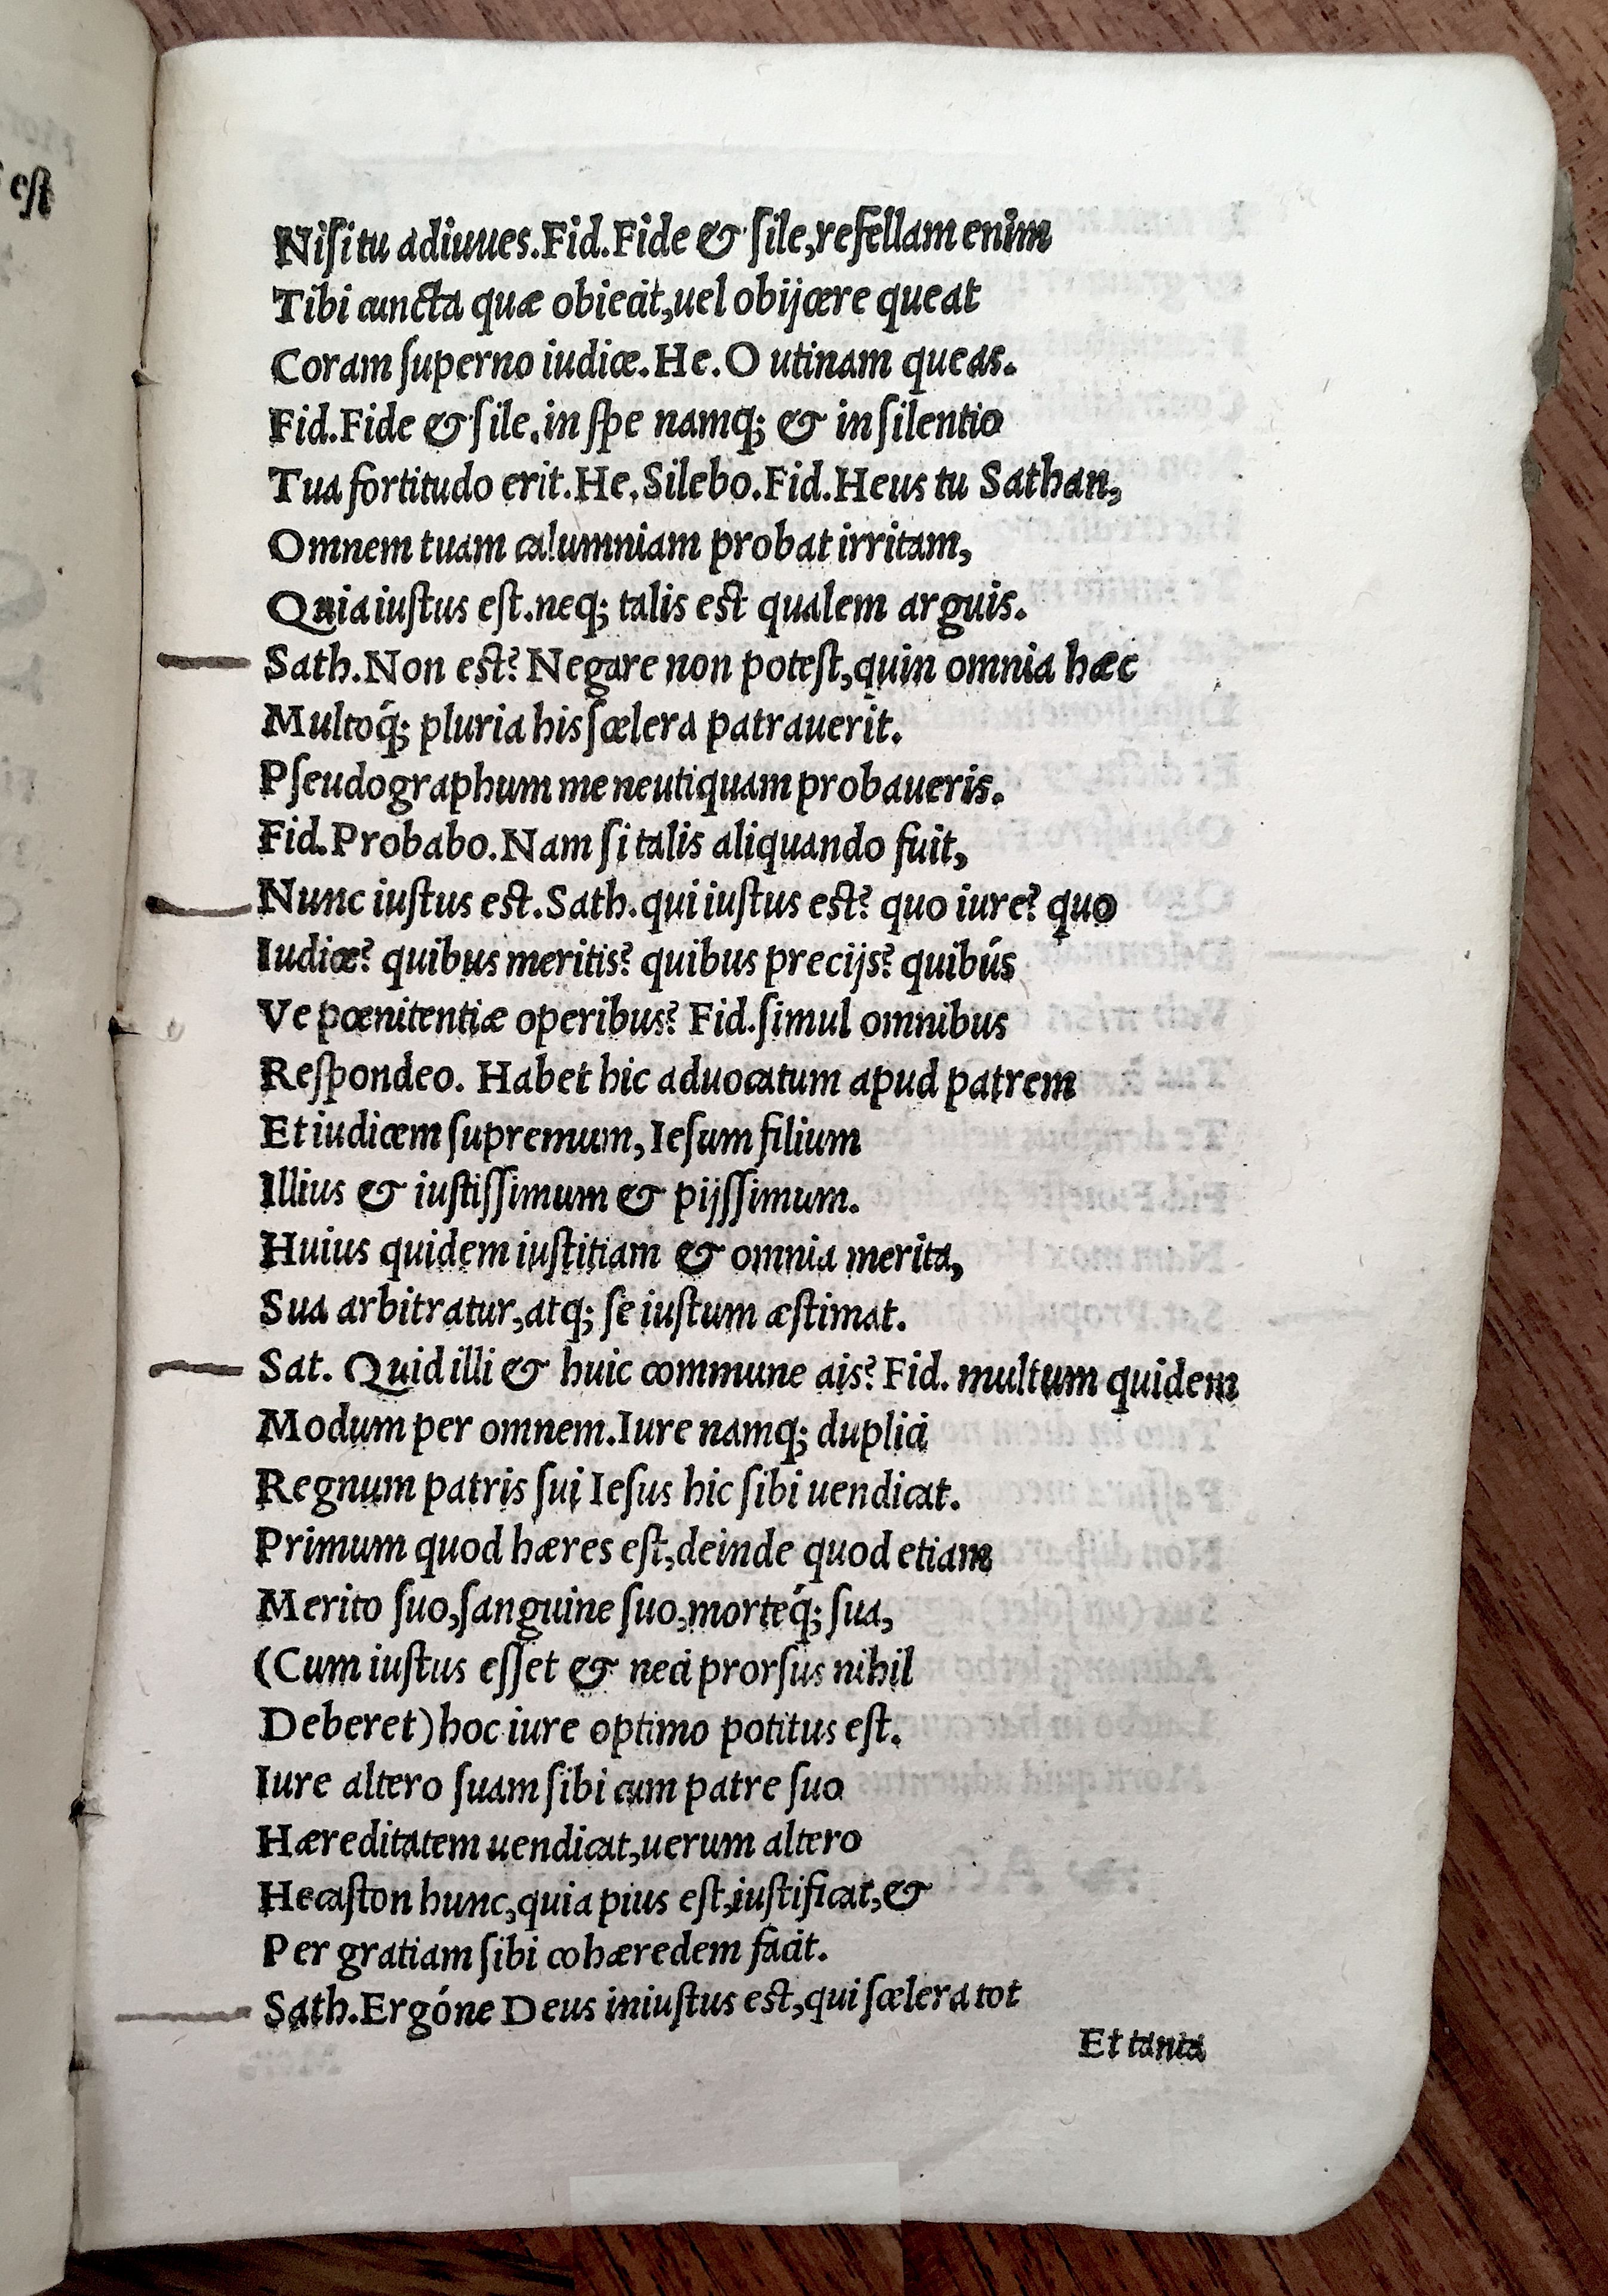 Nisi tu adiuues.Fid.Fide & sile,refellam enim
Tibi cuncta quæ obiecit,uel obijcere queat
Coram superno iudice.He.O utinam queas.
Fid.Fide & sile.in spe namq; & in silentio
Tua fortitudo erit.He.Silebo.Fid.Heus tu Sathan,
Omnem tuam calumniam probat irritam,
Quia iustus est.neq; talis est qualem arguis.
Sath.Non est? Negare non potest,quin omnia hæc
Multoq́; pluria his scelera patrauerit.
Pseudographum me neutiquam probaueris.
Fid.Probabo.Nam si talis aliquando fuit,
Nunc iustus est.Sath.qui iustus est? quo iure? quo
Iudice? quibus meritis? quibus precijs? quibús
Ve pœnitentiæ operibus? Fid.simul omnibus
Respondeo. Habet hic aduocatum apud patrem
Et iudicem supremum, Iesum filium
Illius & iustissimum & pijssimum.
Huius quidem iustitiam & omnia merita,
Sua arbitratur,atq; se iustum æstimat.
Sat. Quid illi & huic commune ais? Fid. multum quidem
Modum per omnem.Iure namq; duplici
Regnum patris sui Iesus hic sibi uendicat.
Primum quod hæres est,deinde quod etiam
Merito suo,sanguine suo,morteq́; sua,
(Cum iustus esset & neci prorsus nihil
Deberet) hoc iure optimo potitus est.
Iure altero suam sibi cum patre suo
Hæreditatem uendicat,uerum altero
Hecaston hunc,quia pius est,iustificat,&
Per gratiam sibi cohæredem facit.
Sath.Ergóne Deus iniustus est,qui scelera tot
Et tanta